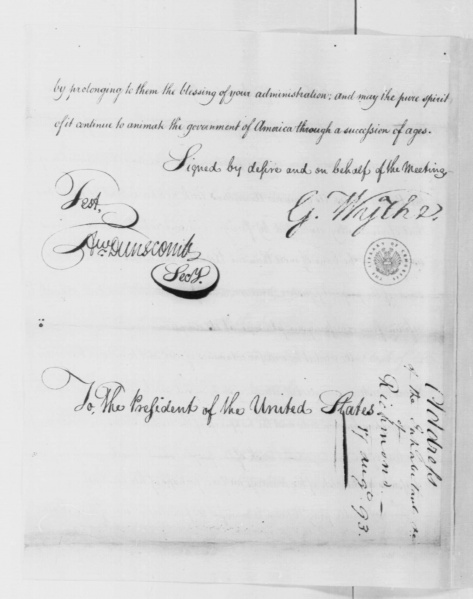 by prolonging to them the blessing of your administration; and may the pure spirit
of it continue to animate the government of America through a succession of ages.
Signed by desire and on behalf of the Meeting
G. Wythe
Test,
Aw Dunscomb
Secy.
To, The President of the United States
Address
of the Inhabitants
of
Richmond
17 Augt 93.
THE LIBRARY OF CONGRESS